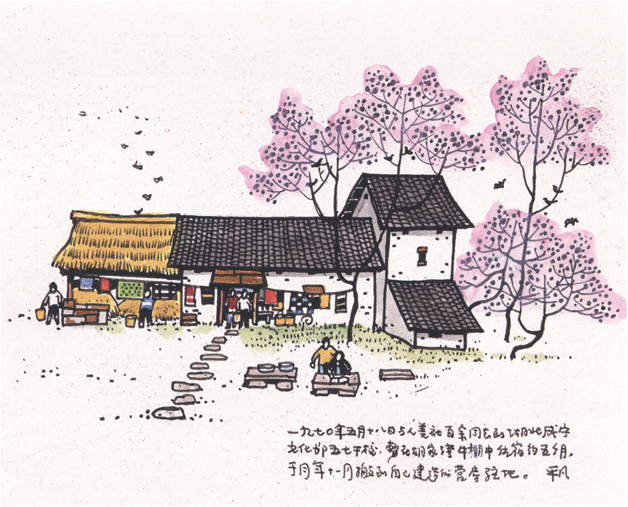 一九七〇年五月十八日与人美社百余同志到湖北咸宁
文化部五七干校，暂在胡家湾牛棚中住宿约五个月，
于同年十一月搬到自己建造的营房驻地。 平凡